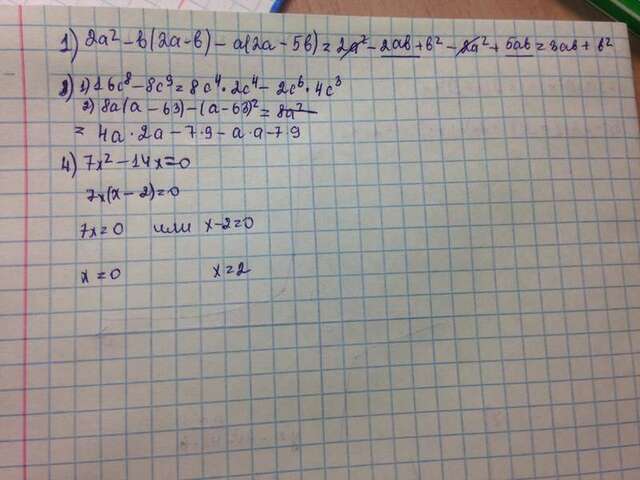 1) 2a² - b(2a-b) - a(2a-5b) = 2a² - 2ab + b² - 2a² + 5ab = 3ab + b²
2) 1) 16c⁸ - 8c⁹ = 8c⁴·2c⁴ - 2c⁶·4c³
2) 8a(a-63) - (a-63)² = 8a²
= 4a·2a - 7·9 - a·a - 7·9
4) 7x² - 14x = 0
7x(x-2) = 0
7x = 0 или x-2=0
x = 0 x = 2